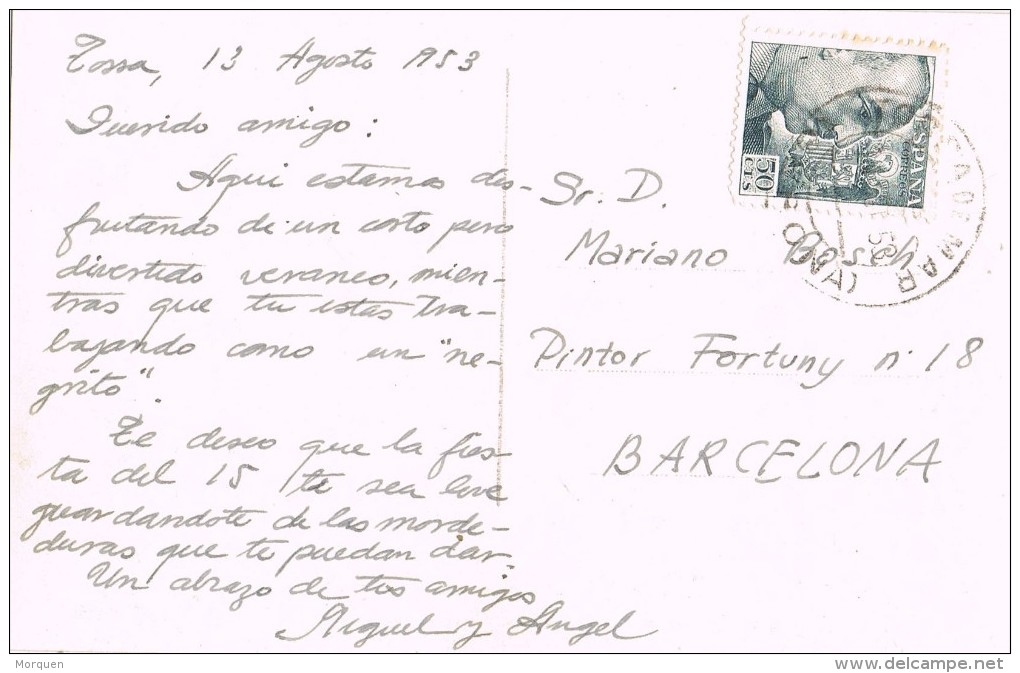 Tossa, 13 Agosto 1953
Querido amigo:
Aqui estamos dis-
frutando de un corto pero
divertido veraneo, mien-
tras que tu estas tra-
bajando como un "ne-
grito".
Te deseo que la fies-
ta del 15 te sea leve
guardandote de las morde-
duras que te puedan dar.
Un abrazo de tus amigos
Miguel y Angel
Sr. D.
Mariano Bosch
Pintor Fortuny nº 18
BARCELONA
ESPAÑA
CORREOS
50
CTS
DE MAR
Morquen
delcampe.net